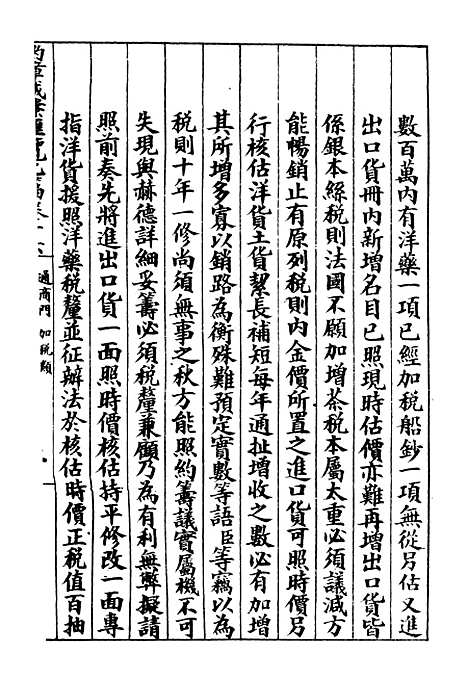 數百萬內有洋藥一項已經加稅船鈔一項無從另估又進
出口貨冊內新增名目已照現時估價亦難再增出口貨皆
係銀本絲稅則法國不願加增茶稅本屬太重必須議減方
能暢銷止有原列稅則內金價所置之進口貨可照時價另
行核估洋貨土貨絜長補短每年通扯增收之數必有加增
其所增多寡以銷路為衡殊難預定實數等語臣等竊以為
稅則十年一修尚須無事之秋方能照約籌議實屬機不可
失現與赫德詳細妥籌必須稅釐兼顧乃為有利無弊擬請
照前奏先將進出口貨一面照時價核估持平修改一面專
指洋貨援照洋藥稅釐並征辦法於核估時價正稅值百抽
約章成案匯覽乙篇卷十
通商門 加稅類
一